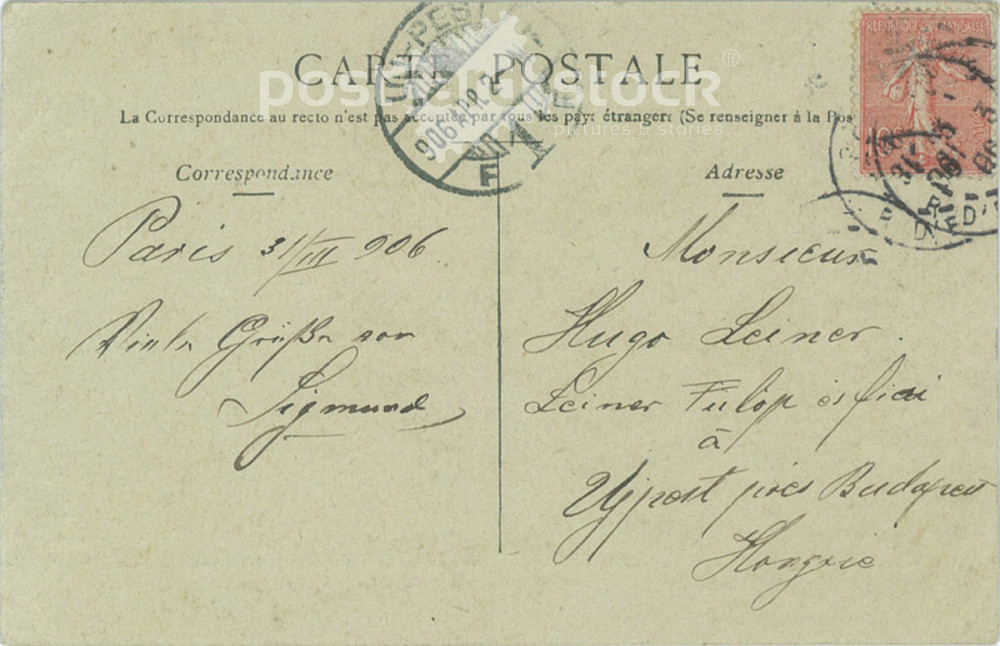 CARTE POSTALE
La Correspondance au recto n'est pas acceptée par tous les pays étrangers (Se renseigner à la Pos
Correspondance
Adresse
RÉPUBLIQUE FRANÇAISE
10
UJ-PEST
906 APR. 2
1
postcard stock
pictures & stories
Paris 31/III 906
Viele Grüße von
Sigmund
Monsieur
Hugo Leiner.
Leiner Fülöp és fiai
à
Ujpest près Budapest
Hongrie